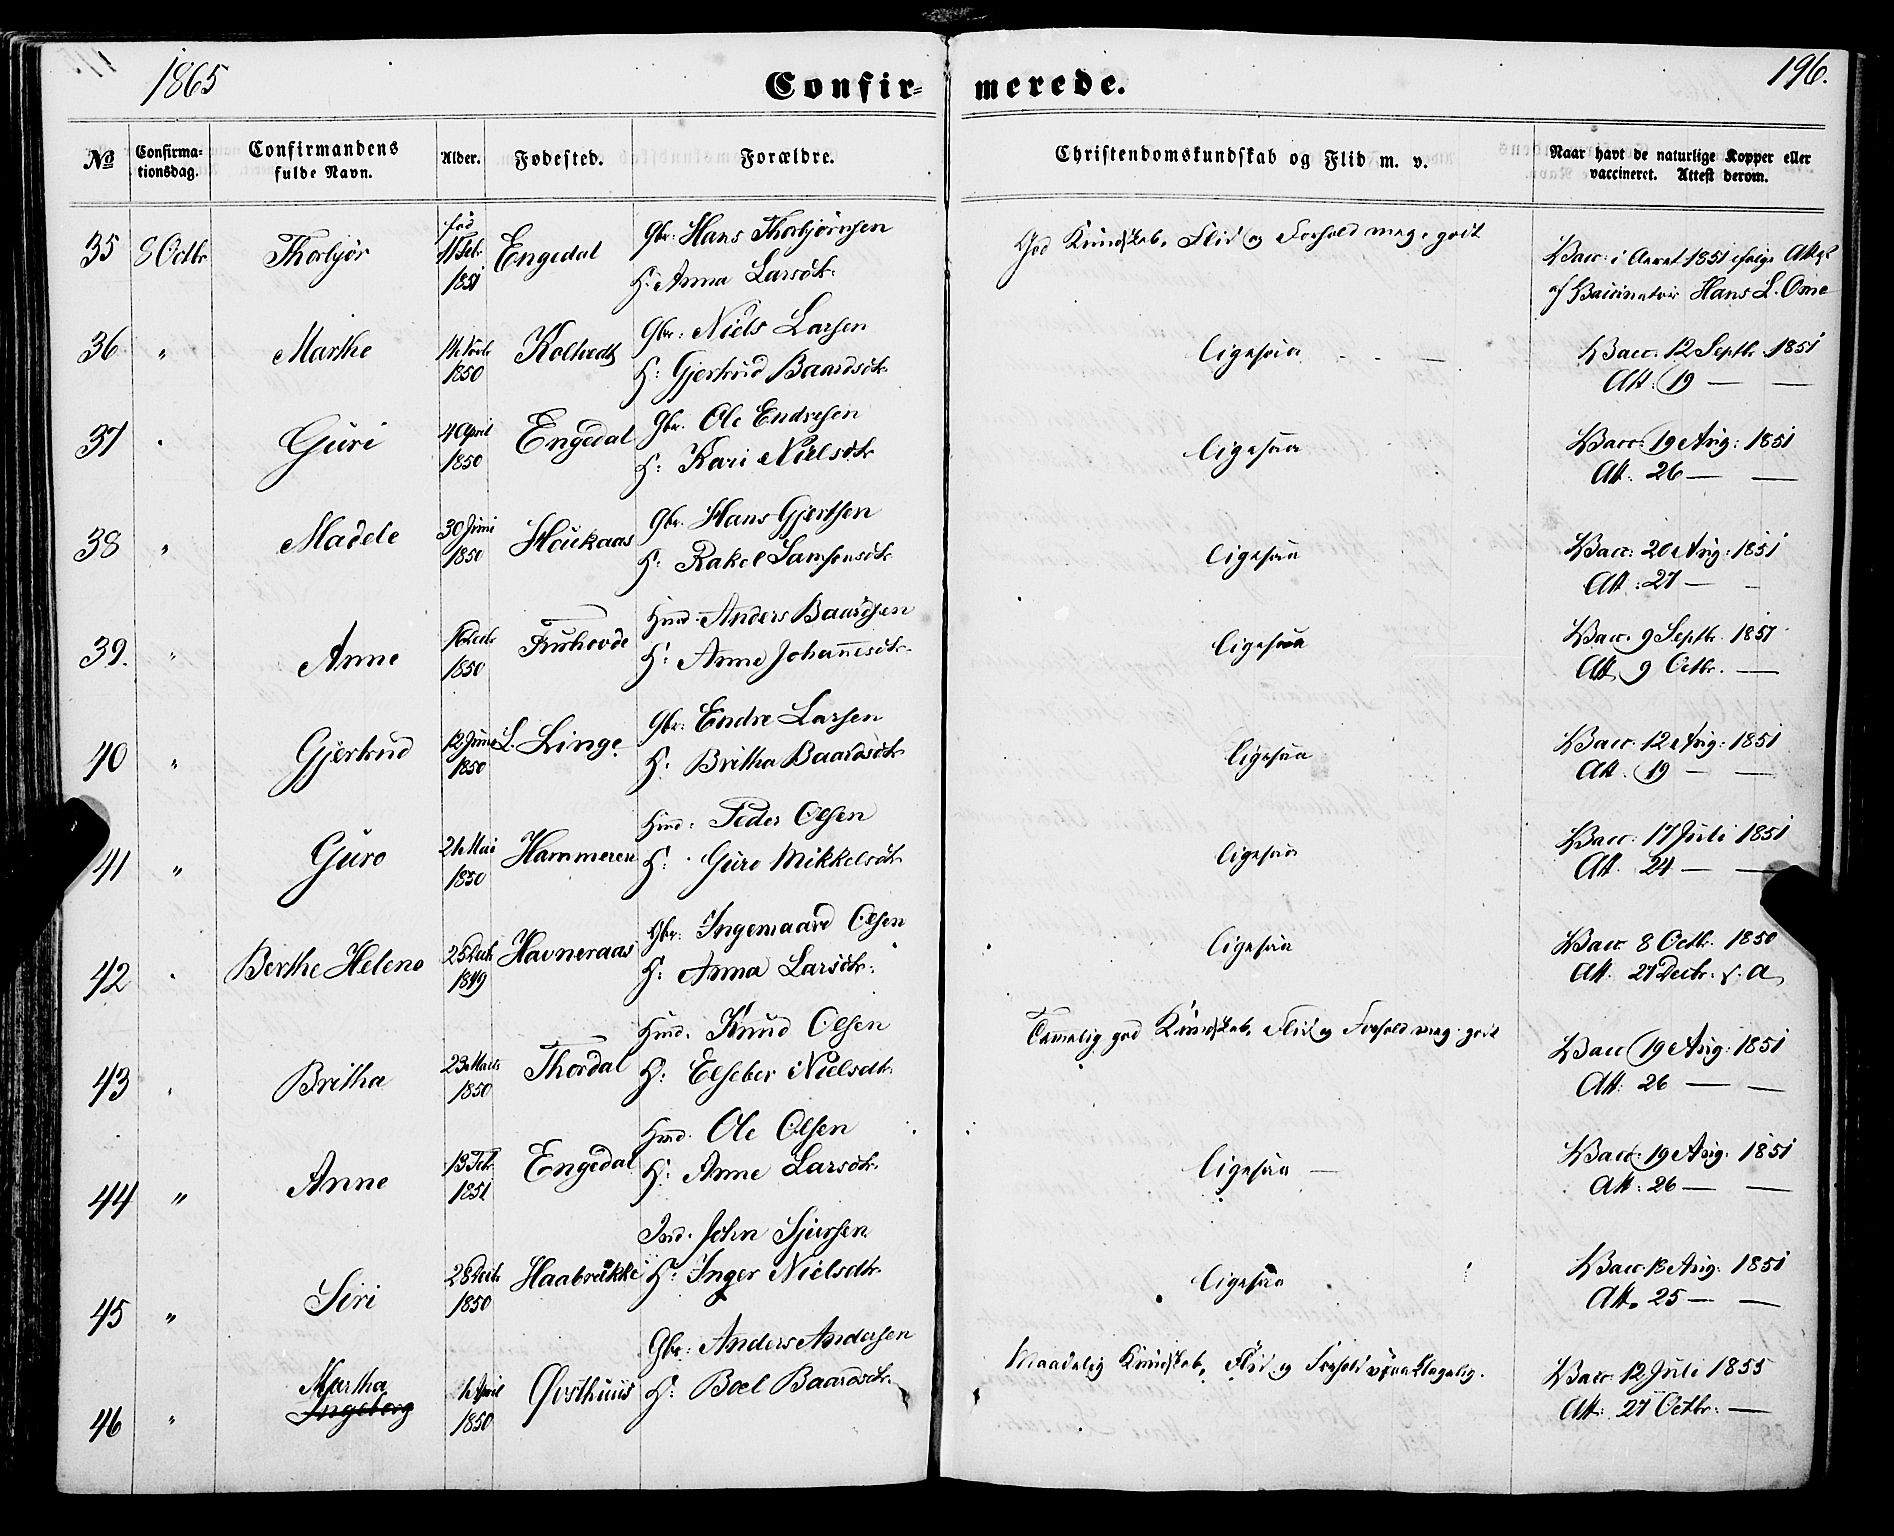 1865
Confirmerede.
196.
No
Confirmationsdag.
Confirmandens fulde Navn.
Alder.
Fødested.
Forældre.
Christendomskundskab og Flid m. v.
Naar havt de naturlige Kopper eller vaccineret. Attest derom.
35 8 Octbr Thorbjør fød 11 Febr 1851 Engedal Gbr: Hans Thorbjørnsen
H: Anna Larsdtr.
God Kundskab, Flid og Forhold meg. godt
Vacc: i Aaret 1851 ifølge Attest
af Vaccinatør Hans L. Osne
36 " Marthe 14 Novbr 1850 Gbr: Niels Larsen
H: Gjertrud Baardsdtr.
ligesaa — —
Vacc. 12 Septbr. 1851
Att: 19 — —
37 " Guri 4 April 1850 Engedal Gbr. Ole Endresen
H: Kari Nielsdtr
ligesaa
Vacc. 19 Aug: 1851
Att: 26 — —
38 " Madele 30 Juni 1850 Houkaas Gbr. Hans Gjertsen
H: Rakel Samsonsdtr
ligesaa
Vacc: 20 Aug: 1851
Att: 27 — —
39. " Anne 1850 Furhovde Huusmd. Anders Baardsen
H: Anne Johannesdtr.
ligesaa
Vacc. 9 Septbr. 1851
Att. 9 Octbr. —
40 " Gjertrud 12 Juni 1850 L. Linge Gbr: Endre Larsen
H: Britha Baardsdtr
ligesaa
Vacc. 12 Aug: 1851
Att. 19 — —
41 " Guro 24 Mai 1850 Hammeren Hmd: Peder Olsen
H: Guro Mikkelsdtr
ligesaa
Vacc: 17 Juli 1851
Att. 24 — —
42 " Berthe Helene 25 Decbr 1849 Havneraas Gbr: Ingemaard Olsen
H: Anna Larsdtr.
ligesaa
Vacc 8 Octbr. 1850
Att. 27 Decbr. s. A
43 " Britha 23 Marts 1850 Thordal Hmd. Knud Olsen
H: Elseber Nielsdtr
Temelig god Kundskab, Flid og Forhold meg. godt
Vacc 19 Aug: 1851
Att: 26 — —
44 " Anne 13 Febr 1851 Engedal Hmd. Ole Olsen
H: Anne Larsdtr.
ligesaa —
Vacc: 19 Aug: 1851
Att: 26 — —
45 " Siri 28 Decbr 1850 Haabrække Ind. John Sjursen
H: Inger Nielsdtr.
ligesaa
Vacc. 18 Aug: 1851
Att. 25 — —
46 " Martha
Ingeborg April 1850 Øvsthuus Gbr: Anders Andersen
H: Boel Baardsdtr.
Maadelig Kundskab, Flid og Forhold upaaklagelig.
Vacc. 12 Juli 1855
Att: 27 Octbr: —